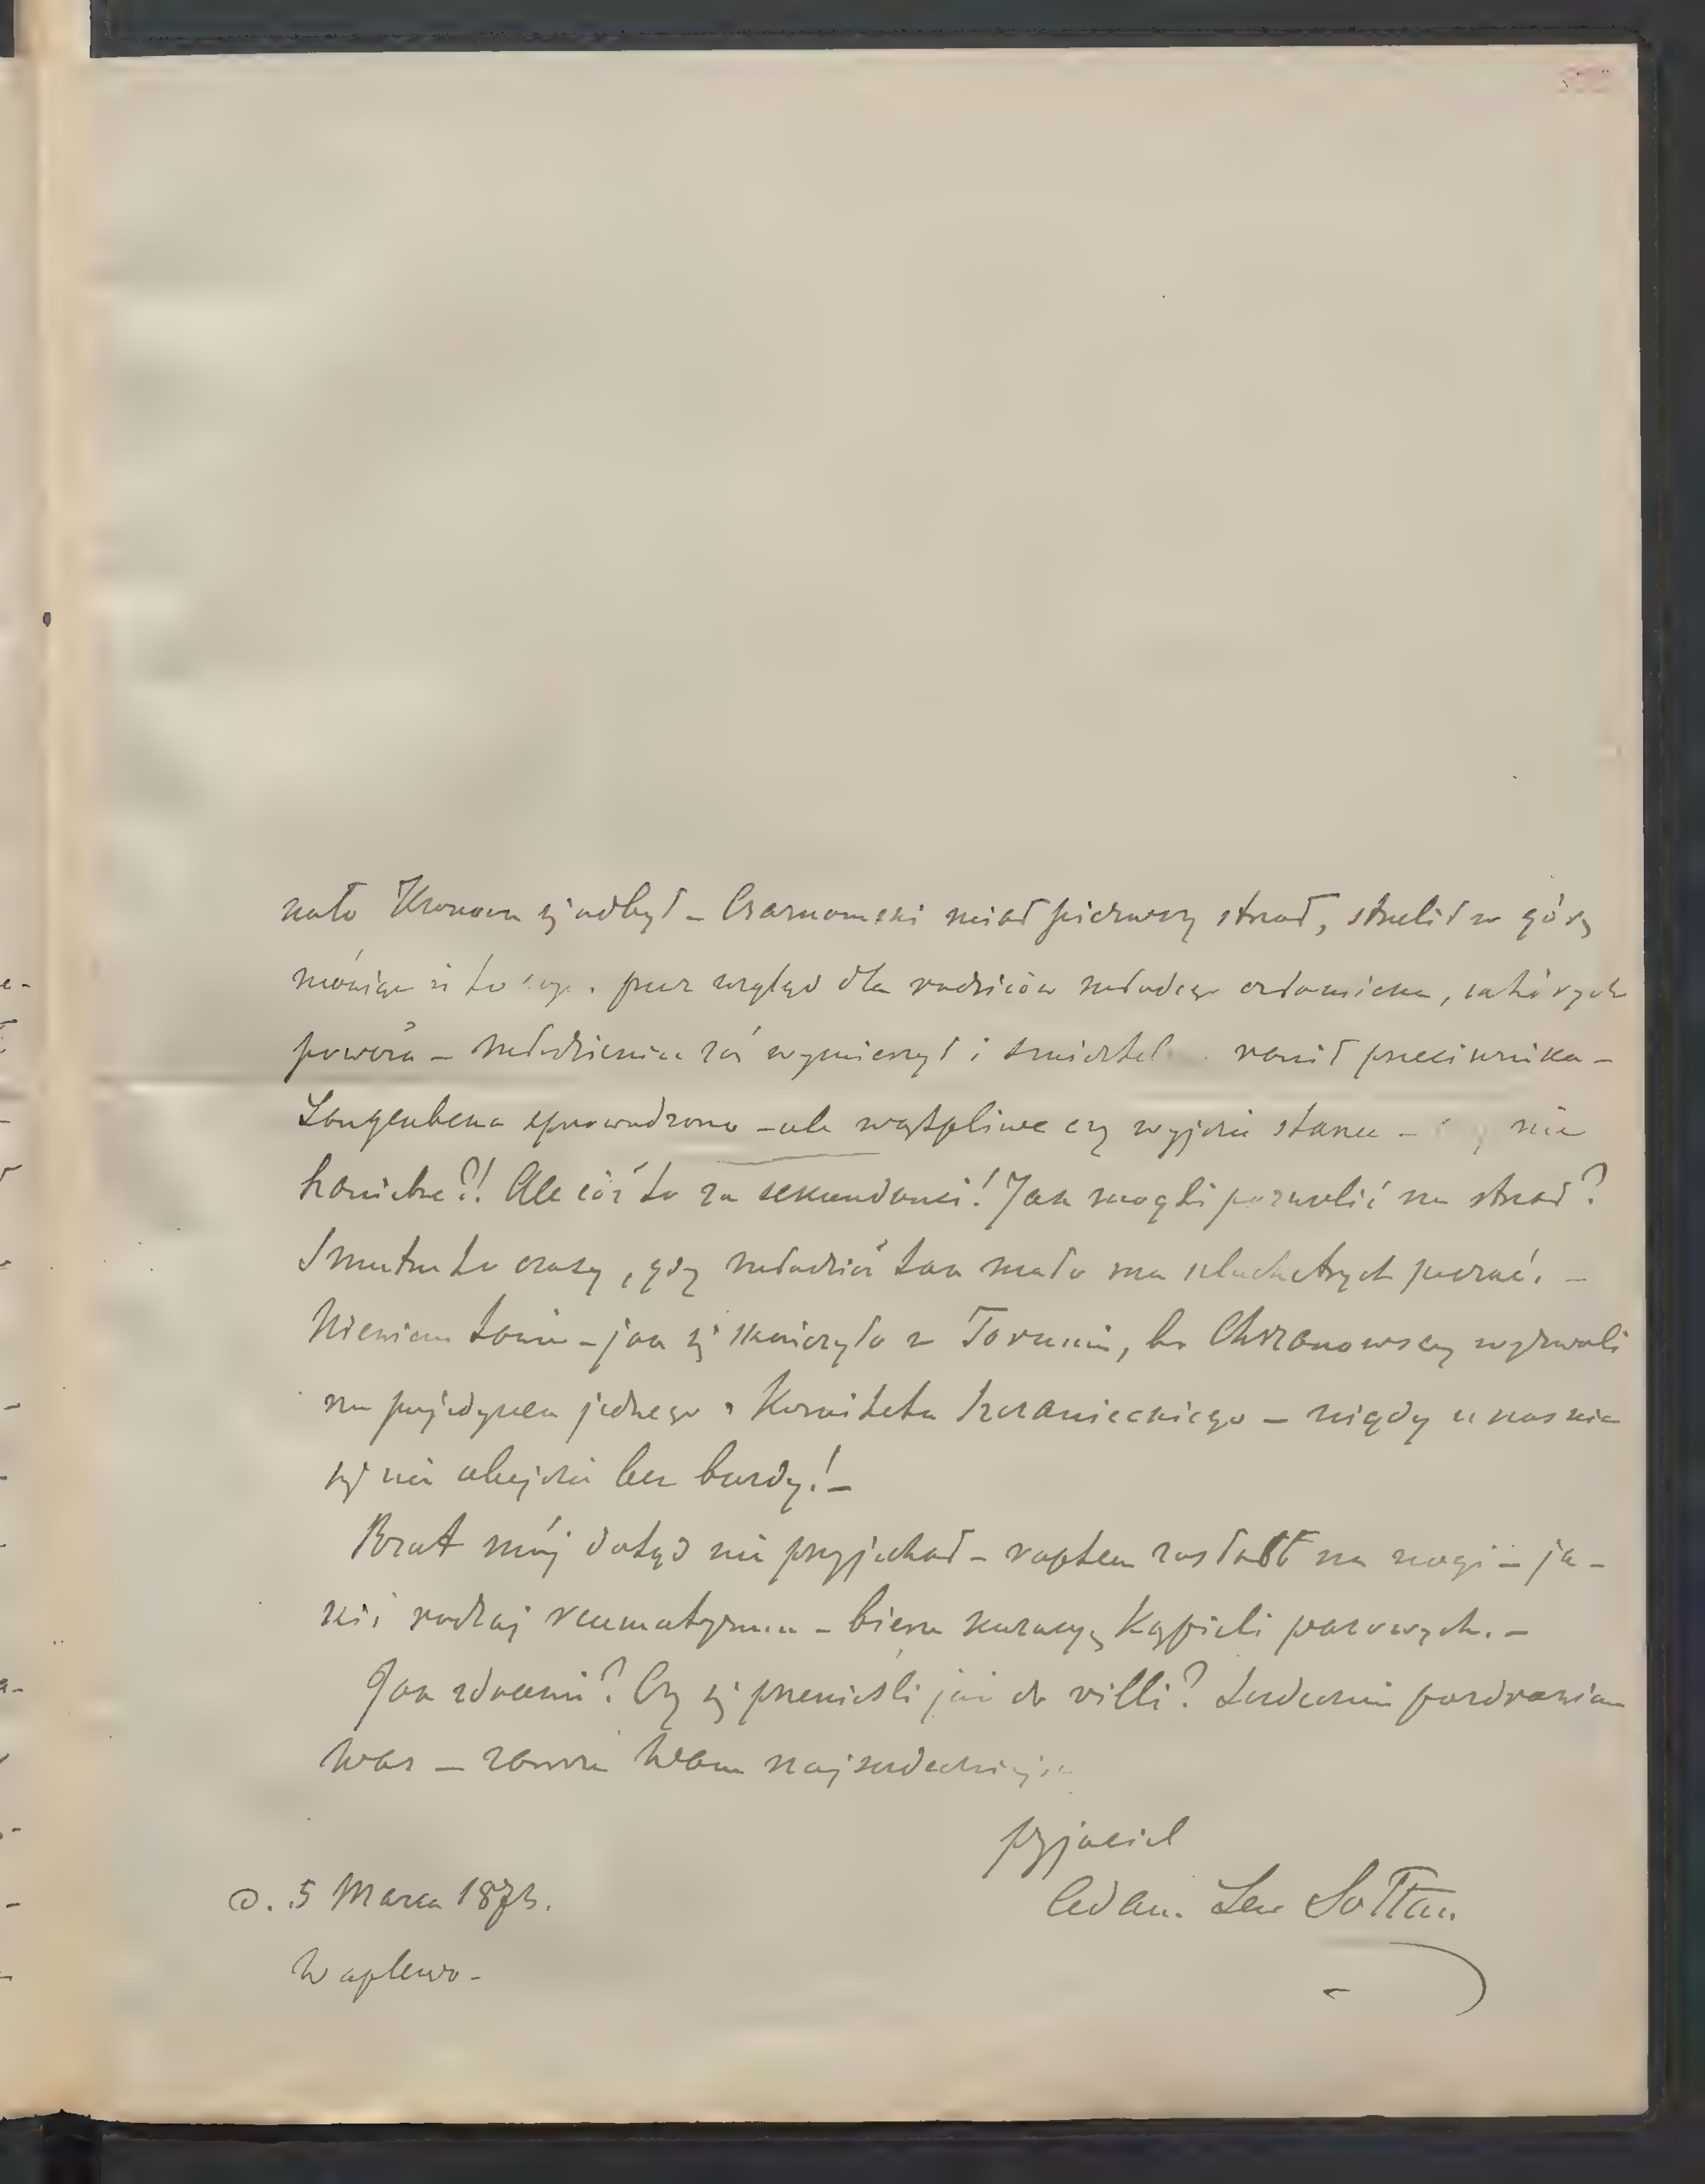 koło Krakowa się odbył – Czarnomski miał pierwszy strzał, strzelił w górę
mówiąc że to przez wzgląd dla rodziców młodego człowieka, których
poważa – młodzieniec zaś wymierzył i ranił przeciwnika –
Langenbeka sprowadzono – ale wątpliwe czy wyjdzie z tego – nie
haniebne?! Ale cóż to za sekundanci! Jak mogli pozwolić na strzał?
Smutne to czasy, gdy młodzież tak mało ma szlachetnych poczuć. –
Niewiem także – jak się skończyło w Toruniu, bo Chrzanowscy wyzwali
na pojedynek jednego z Komitetu Szczanieckiego – nigdy u nas nic
się nie obejdzie bez burdy! –
Brat mój dotąd nie przyjechał – raptem zasłabł na nogi – ja-
kiś rodzaj reumatyzmu – bierze kuracyę kąpieli parowych. –
Jak zdrowie? Czy się przenieśli już do villi? Serdecznie pozdrawiam
Was – zawsze Wam najserdeczniejszy
przyjaciel
Adam Lew Sołtan
d. 5 Marca 1873.
Waplewo –